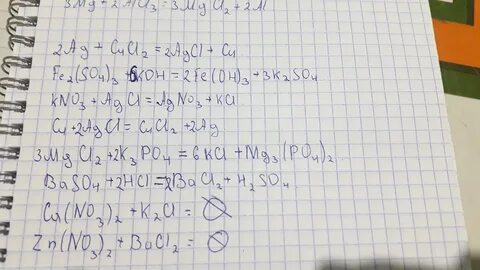 3Mg + 2AlCl3 = 3MgCl2 + 2Al
2Ag + CuCl2 = 2AgCl + Cu
Fe2(SO4)3 + 6KOH = 2Fe(OH)3 + 3K2SO4
KNO3 + AgCl = AgNO3 + KCl
Cu + 2AgCl = CuCl2 + 2Ag
3MgCl2 + 2K3PO4 = 6KCl + Mg3(PO4)2
BaSO4 + 2HCl = BaCl2 + H2SO4
Cu(NO3)2 + K2Cl = ∅
Zn(NO3)2 + BaCl2 = ∅